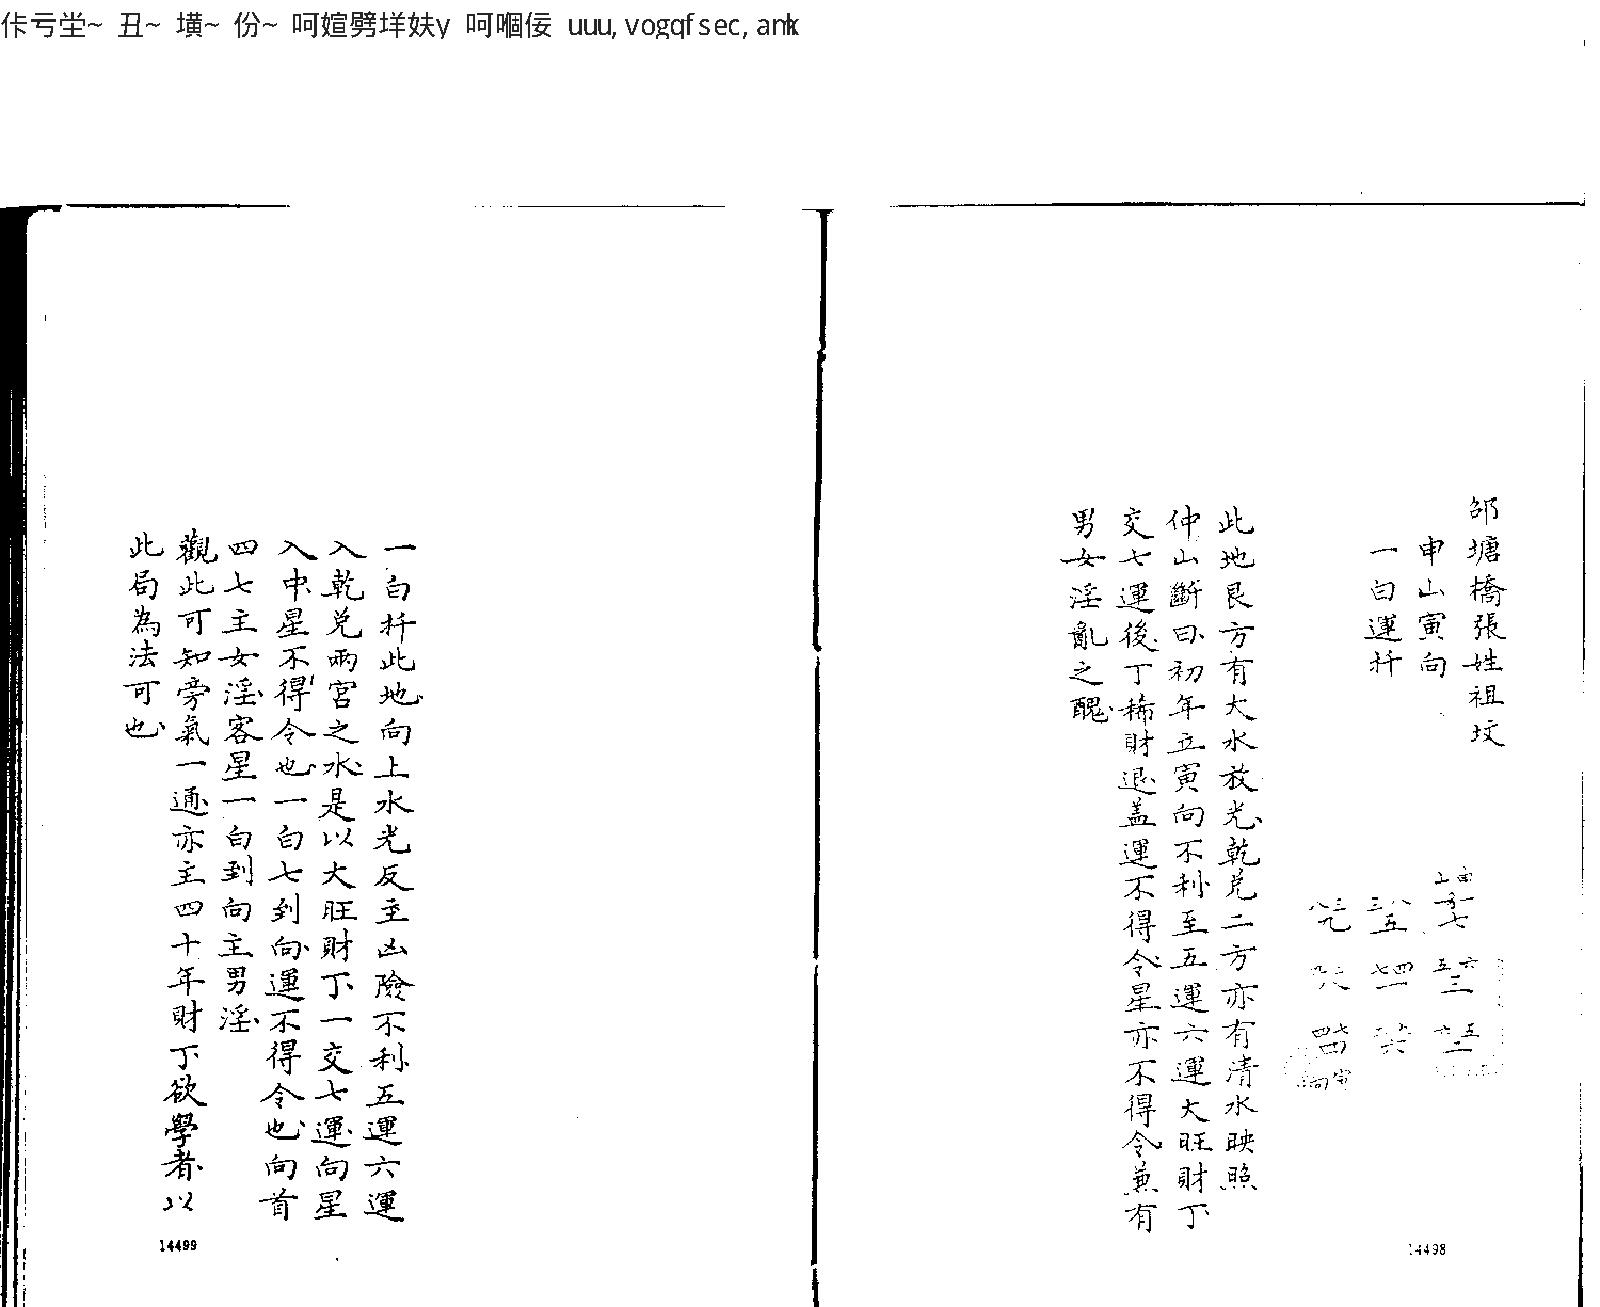 佧亏坣~ 丑~ 墴~ 份~ 呵媗劈垟妋y 呵嘓佞 uuu, vogqfsec, amk
邵塘橋張姓祖坟
申山寅向
一白運扦
此地艮方有大水放光乾兑二方亦有清水映照
仲山斷曰初年立寅向不利至五運六運大旺財丁
交七運後丁稀財退盖運不得令星亦不得令兼有
男女淫亂之醜
14498
一白扦此地向上水光反主凶險不利五運六運
入乾兑兩宮之水是以大旺財丁一交七運向星
入中星不得令也一白七到向運不得令也向首
四七主女淫客星一白到向主男淫
觀此可知旁氣一通亦主四十年財丁欲學者以
此局為法可也
14499